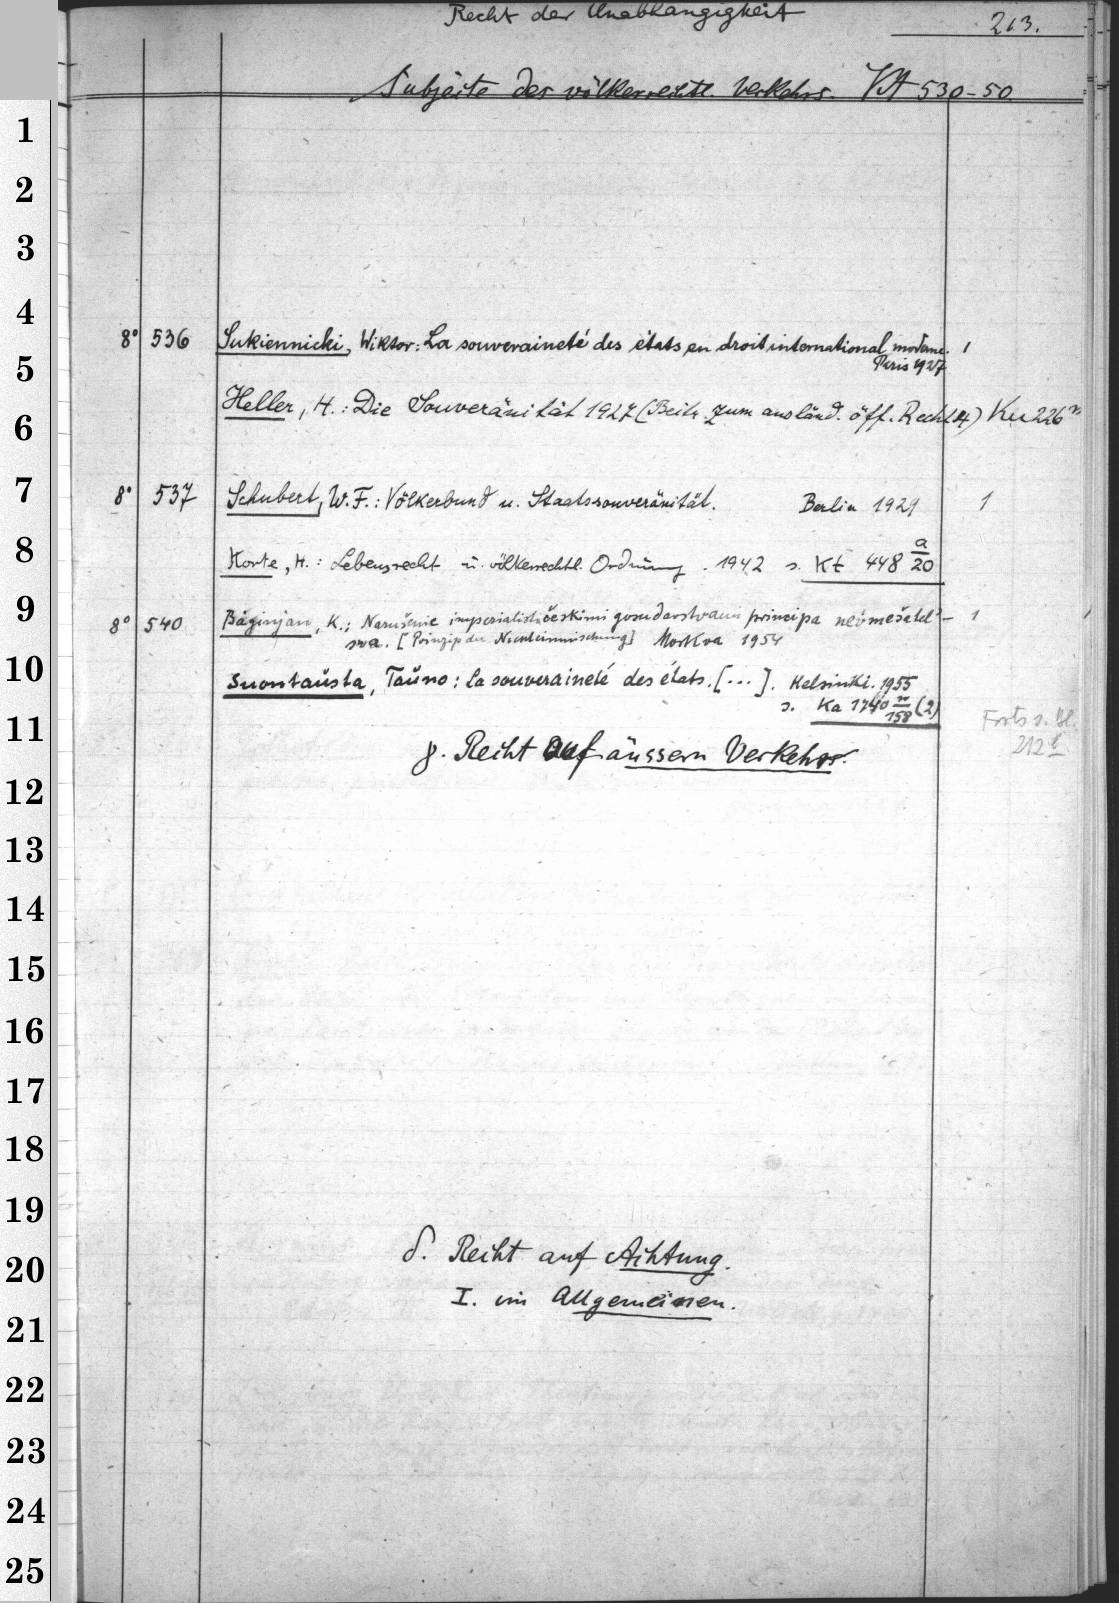 Recht der Unabhängigkeit
213.
Subjecte des völkerrechtl. Verkehrs. VA 530-50
1
2
3
4
8° 536 Sukiennicki, Wiktor: La souveraineté des états en droit international moderne. 1
Paris 1927
5
Heller, H.: Die Souveränität 1927 (Beitr. zum ausländ. öff. Recht 4) Ku 226
6
7
8° 537 Schubert, W. F.: Völkerbund u. Staatssouveränität. Berlin 1921 1
8
Korte, H.: Lebensrecht u. völkerrechtl. Ordnung. 1942 s. Kt 448 a/20
9
8° 540 Baginjan, K.: Narušenie imperialističeskimi gosudarstvami principa nevmešatel'- 1
stva. [Prinzip der Nichteinmischung] Moskva 1954
10
Suontausta, Tauno: La souveraineté des états. [...]. Helsinki. 1955
s. Ka 1740 n/158 (2)
11
Forts s. Bl.
212
γ. Recht auf äussern Verkehr.
12
13
14
15
16
17
18
19
δ. Recht auf Achtung.
20
I. im Allgemeinen.
21
22
23
24
25